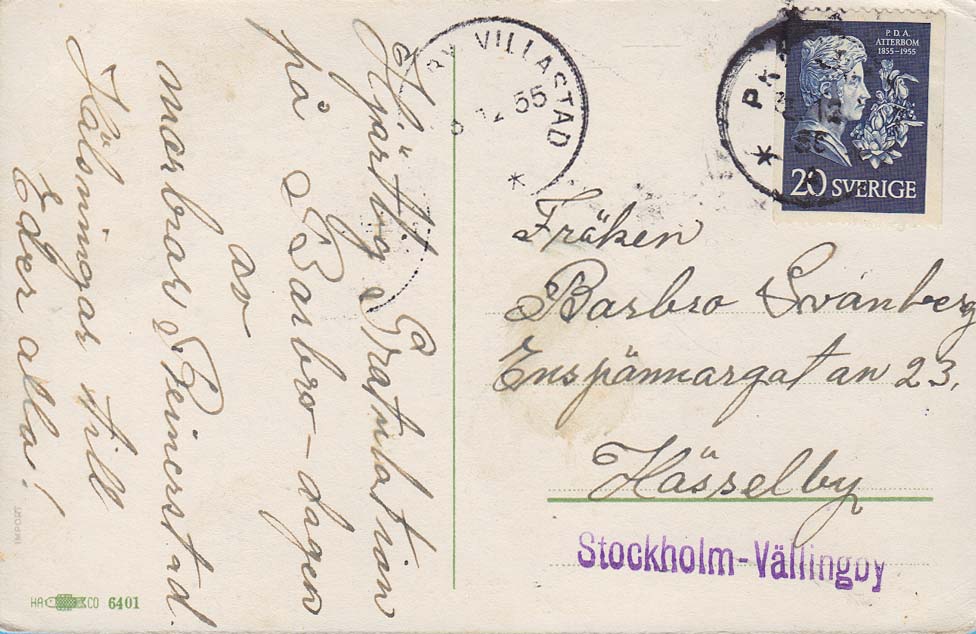 Hjärtlig Gratulation
på Barbro-dagen
av
morbror Reinerstad.
Hälsningar till
Eder alla!
RY VILLASTAD
12 55
P.D.A.
ATTERBOM
1855-1955
20 SVERIGE
Fräken
Barbro Svanberg
Enspännargatan 23,
Hässelby
Stockholm-Vällingby
IMPORT
HA CO 6401